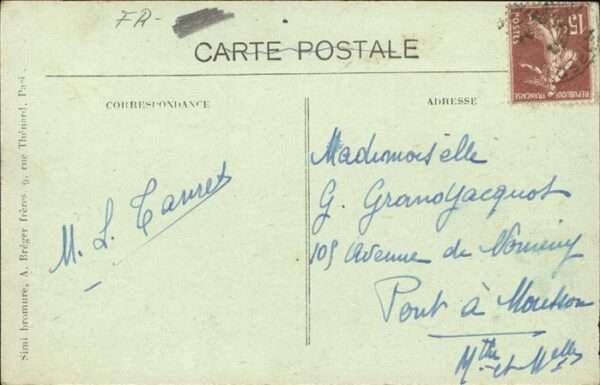 FR-
CARTE POSTALE
15c
POSTES
REPUBLIQUE FRANÇAISE
CORRESPONDANCE
ADRESSE
Mademoiselle
G. Grandjacquot
105 Avenue de Nomeny
Pont à Mousson
Mthe et Melle
M. L. Tanret
Simi bromure, A. Bréger frères, 9, rue Thénard, Paris.